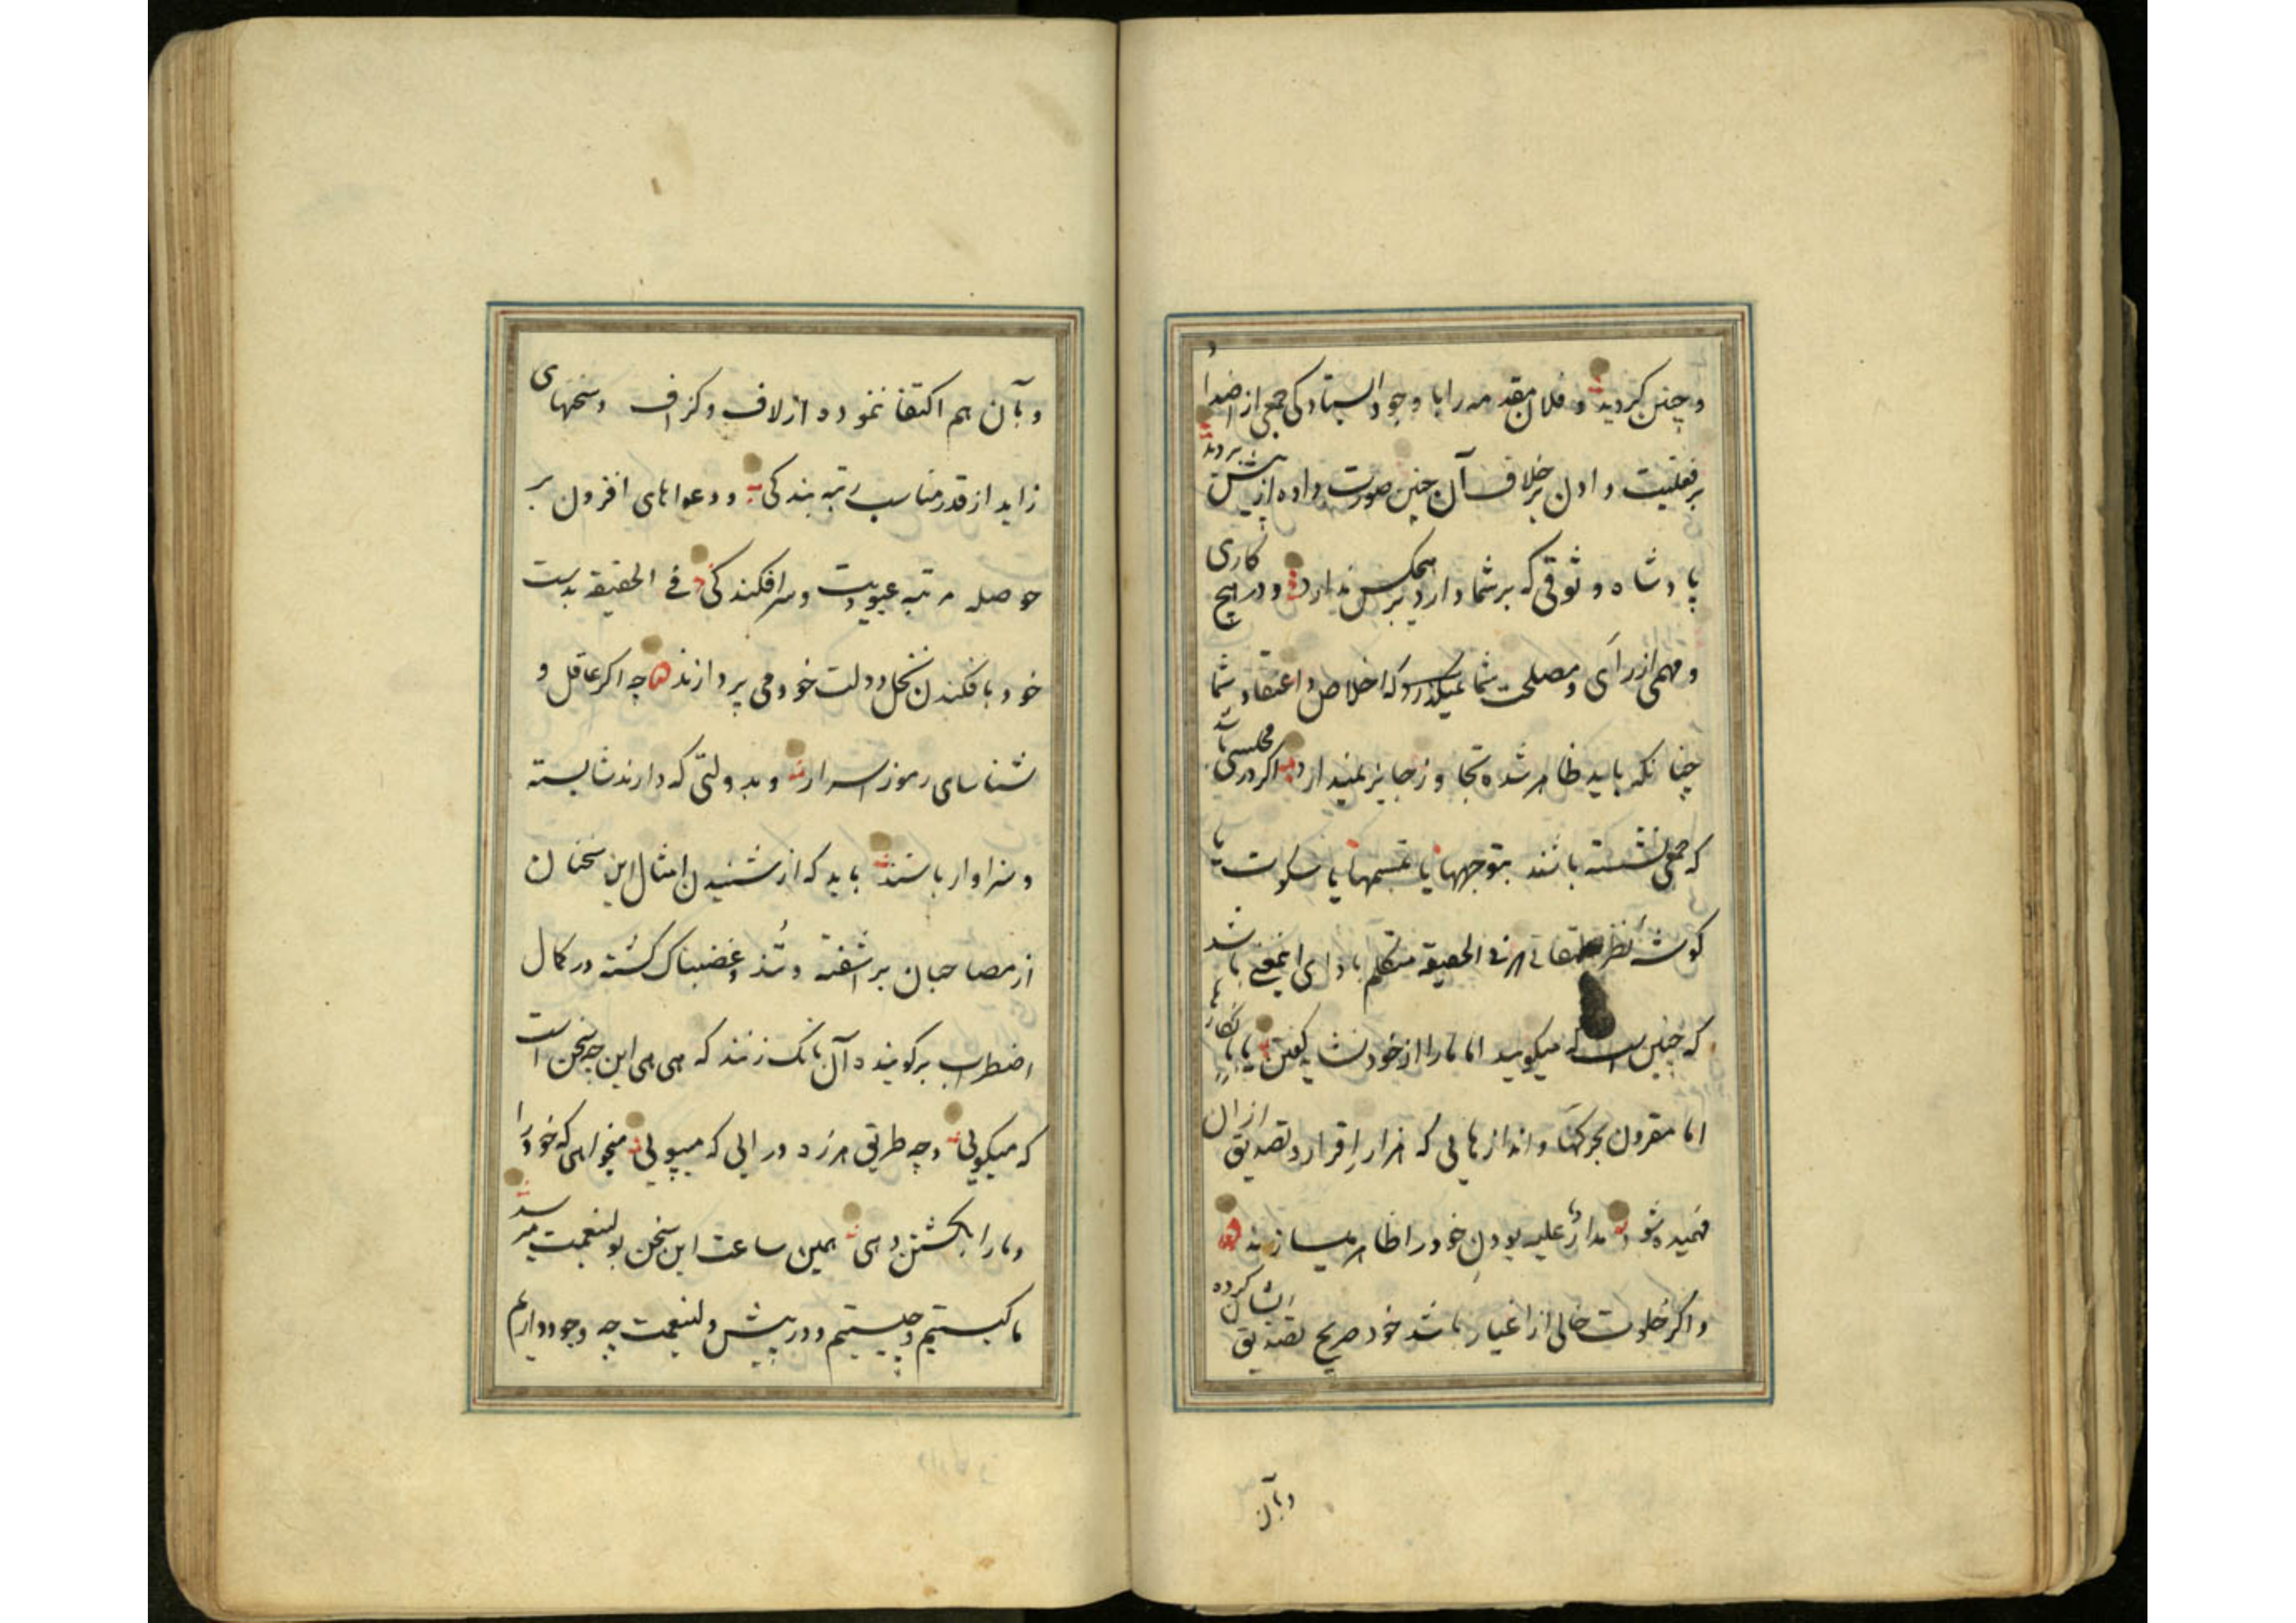 و چنین کردید و فلان مقدمه را با وجود ایستادگی جمعی از اضداد
بر فعلیت دادن بر خلاف آن چنین صورت داده از پیش بردند
پادشاه وثوقی که بر شما دارد بر هیچکس ندارد و در هیچ کاری
و مهمی از رای و مصلحت شما نمیگذرد که اخلاص و اعتقاد شما
چنانکه باید ظاهر شده تجاوز جایز نمیدارد اگر در مجلسی باشد
که جمعی نشسته باشند بتوجهها یا تبسمها یا سکوت یا
گوشه نظر فی الحقیقه متکلم با دای اینمعنی باشد
که چنین است که میگویید اما ما را از خود نشاید گفتن یا بانکار
اما مقرون بحرکتها و اندازهایی که هزار اقرار و تصدیق از ان
فهمیده شود مدارٌ علیه بودن خود را ظاهر میسازند
و اگر خلوت خالی از اغیار باشد خود صریح تصدیق ایشان کرده
وبآن
وبآن هم اکتفا ننموده از لاف و کزاف و سخنهای
زاید از قدر مناسب رتبه بندکی و دعواهای افزون بر
حوصله مرتبه عبودیت و سرافکندکی فی الحقیقه بدست
خود بافکندن نخل دولت خود می پردازند چه اکر عاقل و
شناسای رموز اسرارند و بدولتی که دارند شایسته
و سزاوار باشند باید که از شنیدن امثال این سخنان
از مصاحبان بر آشفته و تُند و غضبناک کشته در کمال
اضطراب بر کوینده آن بانک زنند که هی هی این چه سخن است
که میکویی و چه طریق هرزه درایی که میپویی میخواهی که خود را
و ما را بکشتن دهی همین ساعت این سخن بولینعمت میرسد
ما کیستیم و چیستیم و در پیش ولینعمت چه وجود داریم